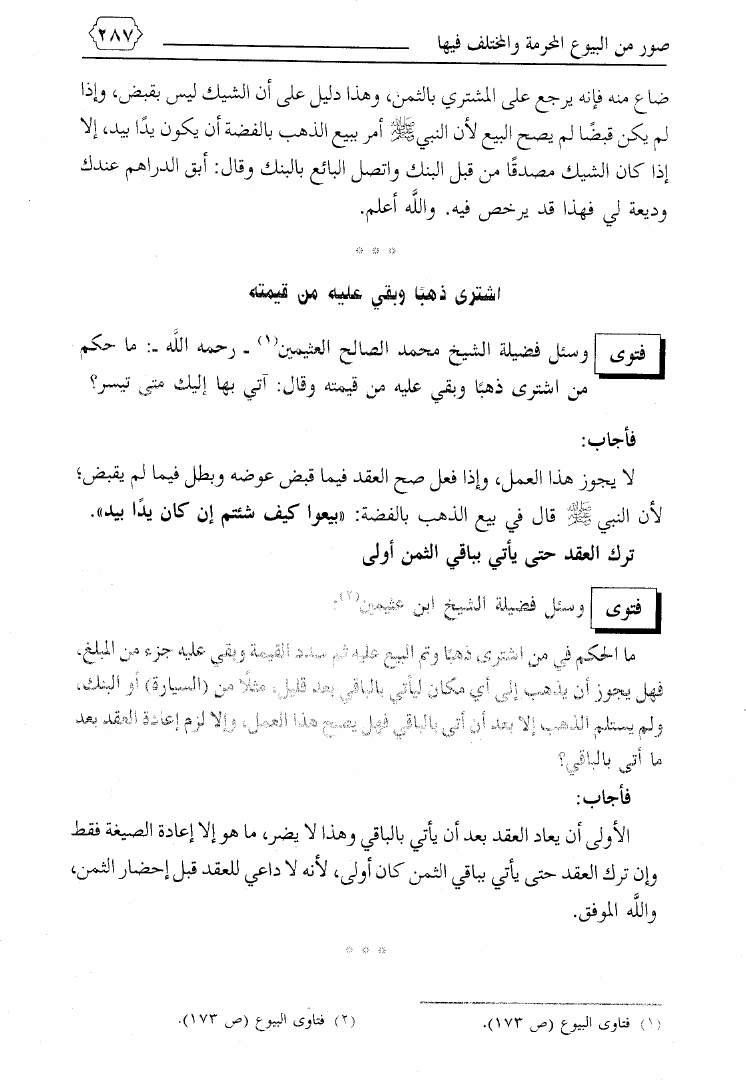 صور من البيوع المحرمة والمختلف فيها
٢٨٧
ضاع منه فإنه يرجع على المشتري بالثمن، وهذا دليل على أن الشيك ليس بقبض، وإذا
لم يكن قبضًا لم يصح البيع لأن النبي ﷺ أمر ببيع الذهب بالفضة أن يكون يدًا بيد، إلا
إذا كان الشيك مصدقًا من قبل البنك واتصل البائع بالبنك وقال: أبق الدراهم عندك
وديعة لي فهذا قد يرخص فيه. واللَّه أعلم.
* * *
اشترى ذهبًا وبقي عليه من قيمته
فتوى وسئل فضيلة الشيخ محمد الصالح العثيمين(١) ـ رحمه اللَّه ـ: ما حكم
من اشترى ذهبًا وبقي عليه من قيمته وقال: آتي بها إليك متى تيسر؟
فأجاب:
لا يجوز هذا العمل، وإذا فعل صح العقد فيما قبض عوضه وبطل فيما لم يقبض؛
لأن النبي ﷺ قال في بيع الذهب بالفضة: «بيعوا كيف شئتم إن كان يدًا بيد».
ترك العقد حتى يأتي بباقي الثمن أولى
فتوى وسئل فضيلة الشيخ ابن عثيمين(٢):
ما الحكم في من اشترى ذهبًا وتم البيع عليه ثم سدد القيمة وبقي عليه جزء من المبلغ،
فهل يجوز أن يذهب إلى أي مكان ليأتي بالباقي بعد قليل، مثلًا من (السيارة) أو البنك،
ولم يستلم الذهب إلا بعد أن أتى بالباقي فهل يصح هذا العمل، وإلا لزم إعادة العقد بعد
ما أتي بالباقي؟
فأجاب:
الأولى أن يعاد العقد بعد أن يأتي بالباقي وهذا لا يضر، ما هو إلا إعادة الصيغة فقط
وإن ترك العقد حتى يأتي بباقي الثمن كان أولى، لأنه لا داعي للعقد قبل إحضار الثمن،
واللَّه الموفق.
* * *
(١) فتاوى البيوع (ص ١٧٣).
(٢) فتاوى البيوع (ص ١٧٣).